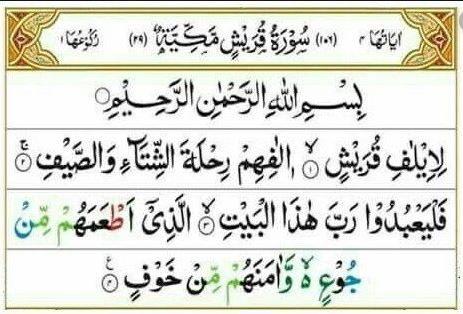 اٰیَاتُهَا ۴ (۱۰۶) سُوْرَةُ قُرَیْشٍ مَّكِّیَّةٌ (۲۹) رُكُوْعُهَا ۱
بِسْمِ اللّٰهِ الرَّحْمٰنِ الرَّحِیْمِ
لِاِیْلٰفِ قُرَیْشٍ ۙ۱ اٖلٰفِهِمْ رِحْلَةَ الشِّتَآءِ وَالصَّیْفِ ۚ۲
فَلْیَعْبُدُوْا رَبَّ هٰذَا الْبَیْتِ ۙ۳ الَّذِیْۤ اَطْعَمَهُمْ مِّنْ
جُوْعٍ ۙ۬ وَّاٰمَنَهُمْ مِّنْ خَوْفٍ ۴ ع